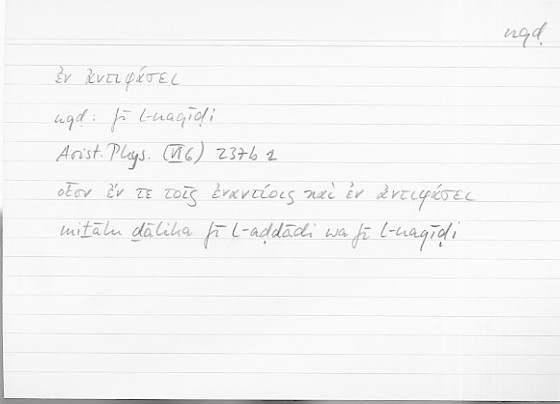 nqḍ
ἐν ἀντιφάσει
nqḍ: fī l-naqīḍi
Arist. Phys. (VI 6) 237b 1
οἷον ἔν τε τοῖς ἐναντίοις καὶ ἐν ἀντιφάσει
miṯālu ḏālika fī l-aḍdādi wa fī l-naqīḍi